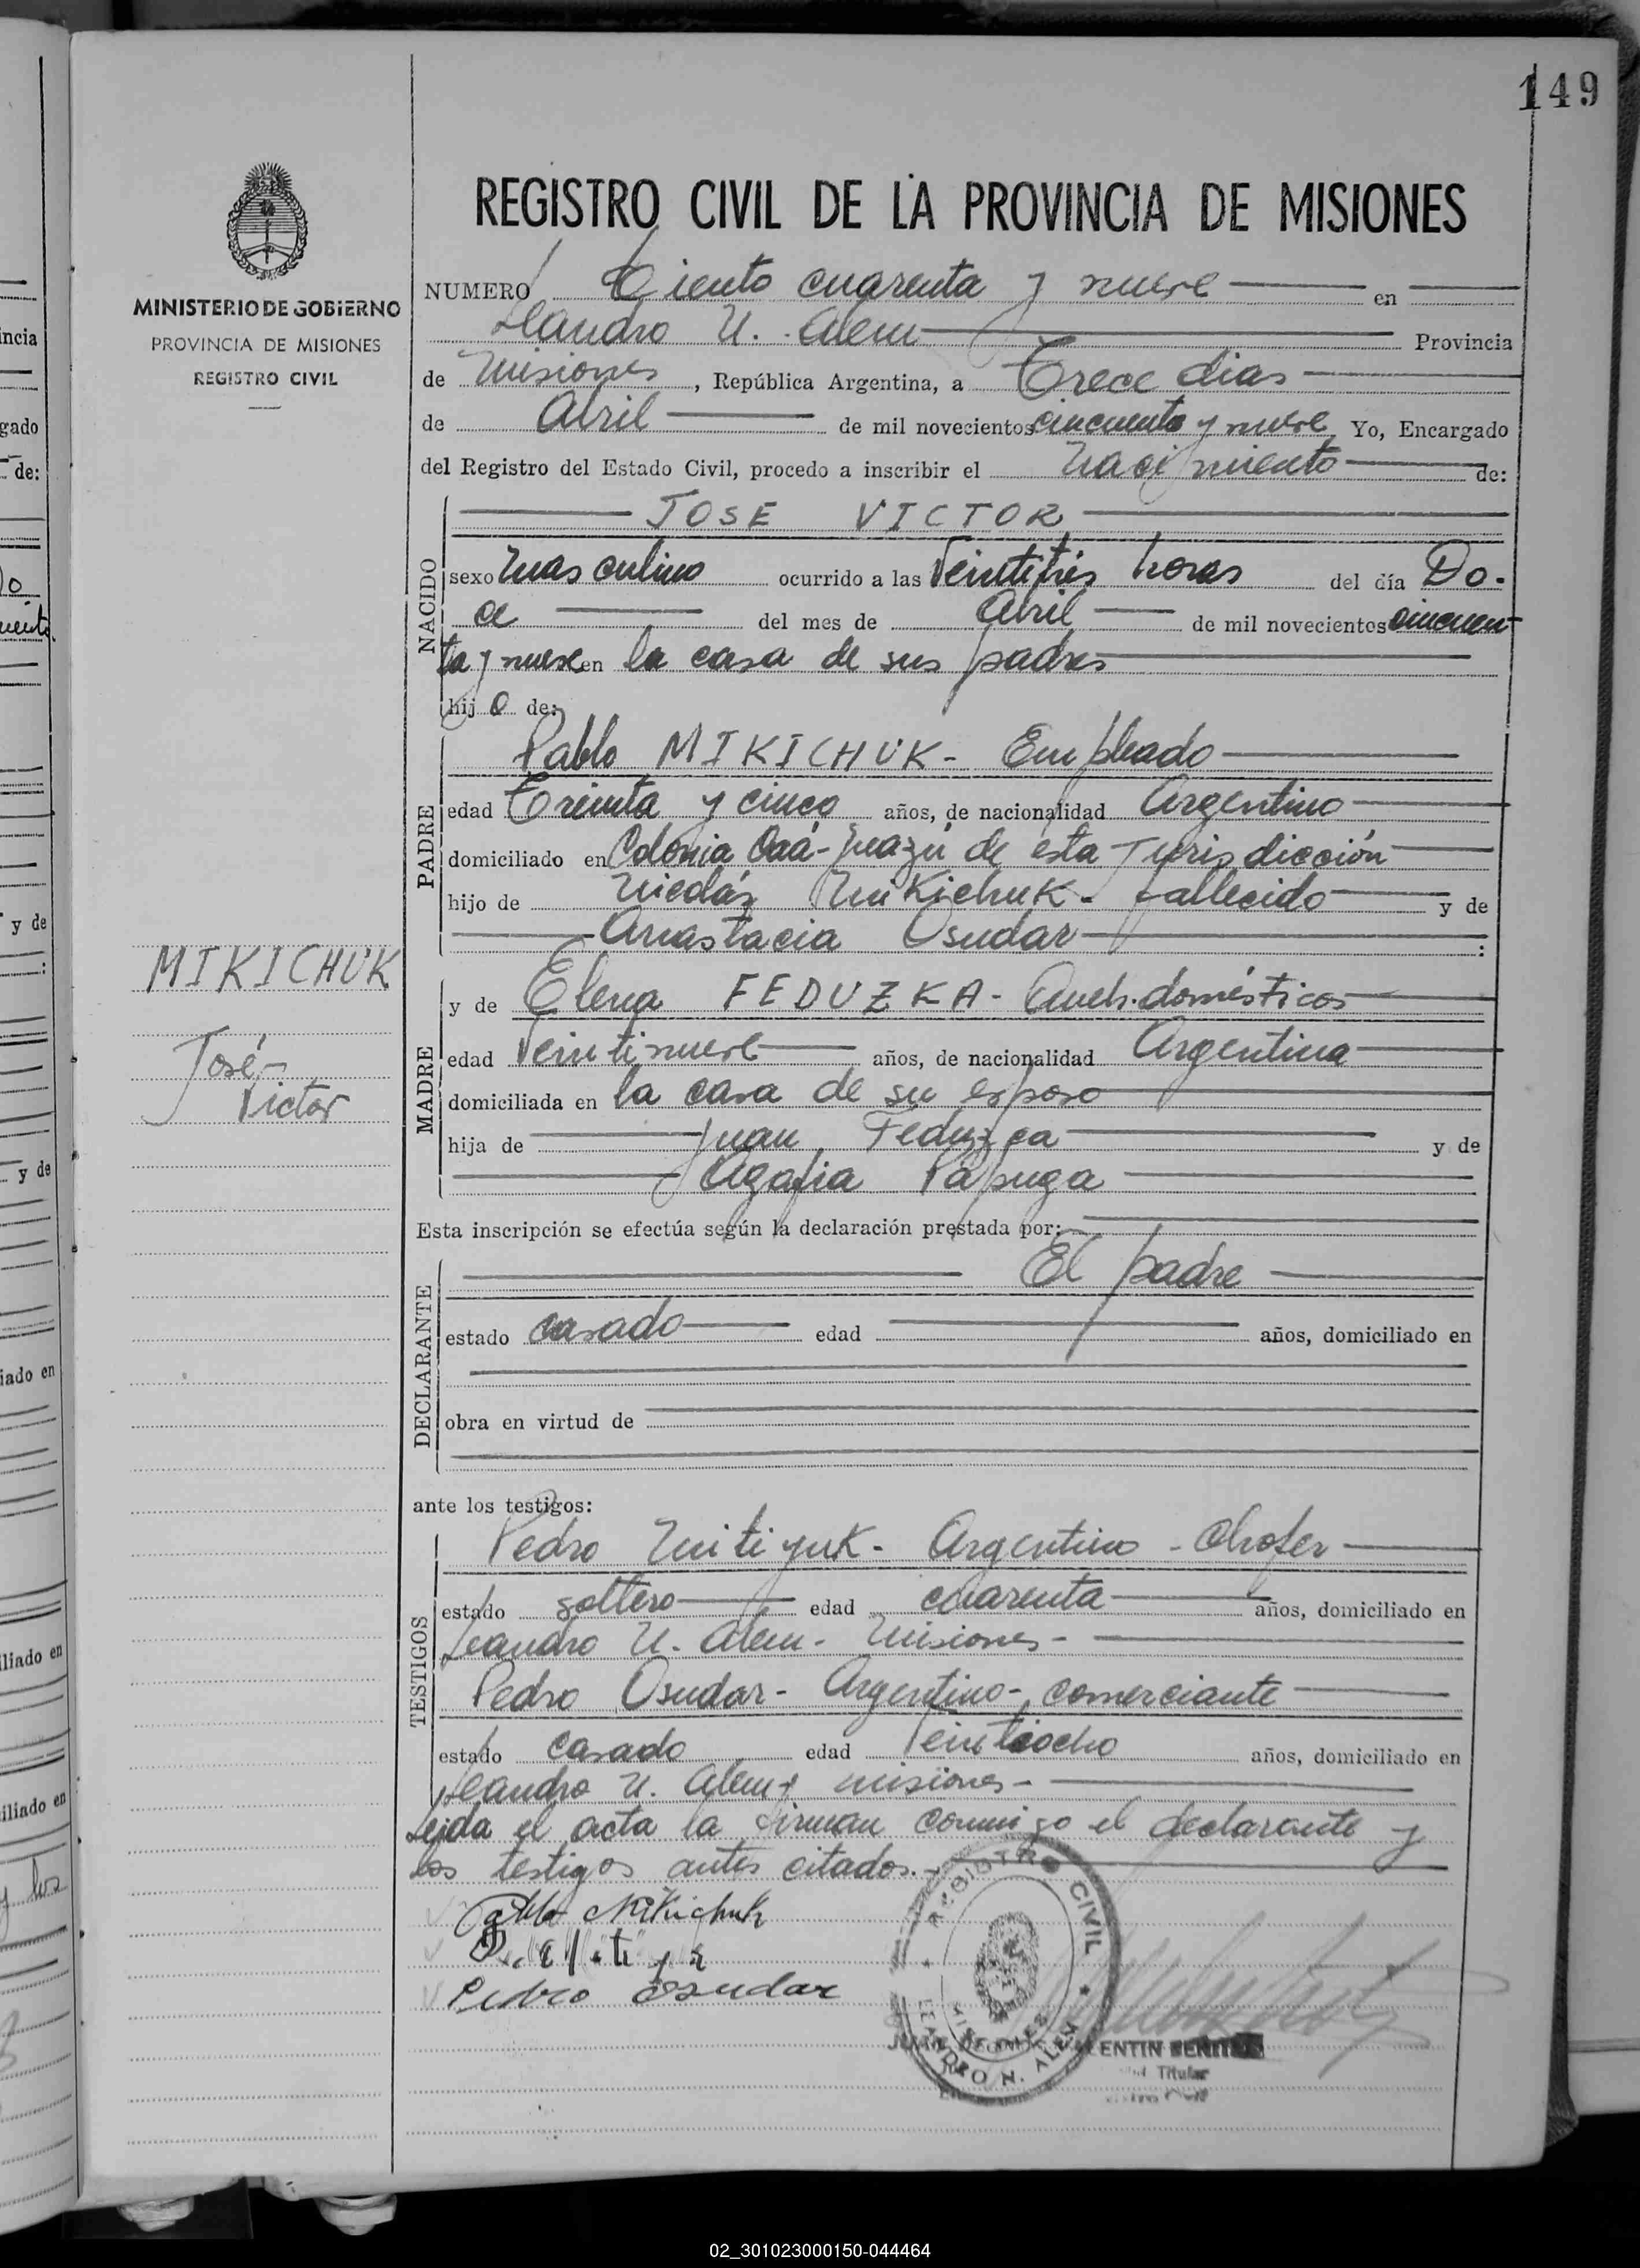 149
MINISTERIO DE GOBIERNO
PROVINCIA DE MISIONES
REGISTRO CIVIL
REGISTRO CIVIL DE LA PROVINCIA DE MISIONES
NUMERO Ciento cuarenta y nueve en
Leandro N. Alem Provincia
de Misiones, República Argentina, a Trece dias
de Abril de mil novecientos cincuenta y nueve Yo, Encargado
del Registro del Estado Civil, procedo a inscribir el Nacimiento de:
NACIDO
JOSE VICTOR
sexo Masculino ocurrido a las Veintitrés horas del día Do-
ce del mes de Abril de mil novecientos cincuen-
ta y nueve en la casa de sus padres
hijo de:
PADRE
Pablo MIKICHUK - Empleado
edad Treinta y cinco años, de nacionalidad Argentino
domiciliado en Colonia Caá-Guazú de ésta Jurisdicción
hijo de Nicolás Mikichuk - fallecido y de
Anastacia Osudar :
MIKICHUK
José
Victor
MADRE
y de Elena FEDUZKA - Queh. domésticos
edad Veintinueve años, de nacionalidad Argentina
domiciliada en la casa de su esposo
hija de Juan Feduzca y de
Agafia Papuga
Esta inscripción se efectúa según la declaración prestada por:
DECLARANTE
El padre
estado casado edad años, domiciliado en
obra en virtud de
ante los testigos:
TESTIGOS
Pedro Mitiyuk - Argentino - Chofer
estado soltero edad cuarenta años, domiciliado en
Leandro N. Alem - Misiones -
Pedro Osudar - Argentino - comerciante
estado casado edad Veintiocho años, domiciliado en
Leandro N. Alem, misiones -
Leida el acta la firman conmigo el declarante y
los testigos antes citados. -
Pablo Mikichuk
Pedro Osudar
REGISTRO CIVIL
MISIONES
LEANDRO N. ALEM
Titular
02_301023000150-044464